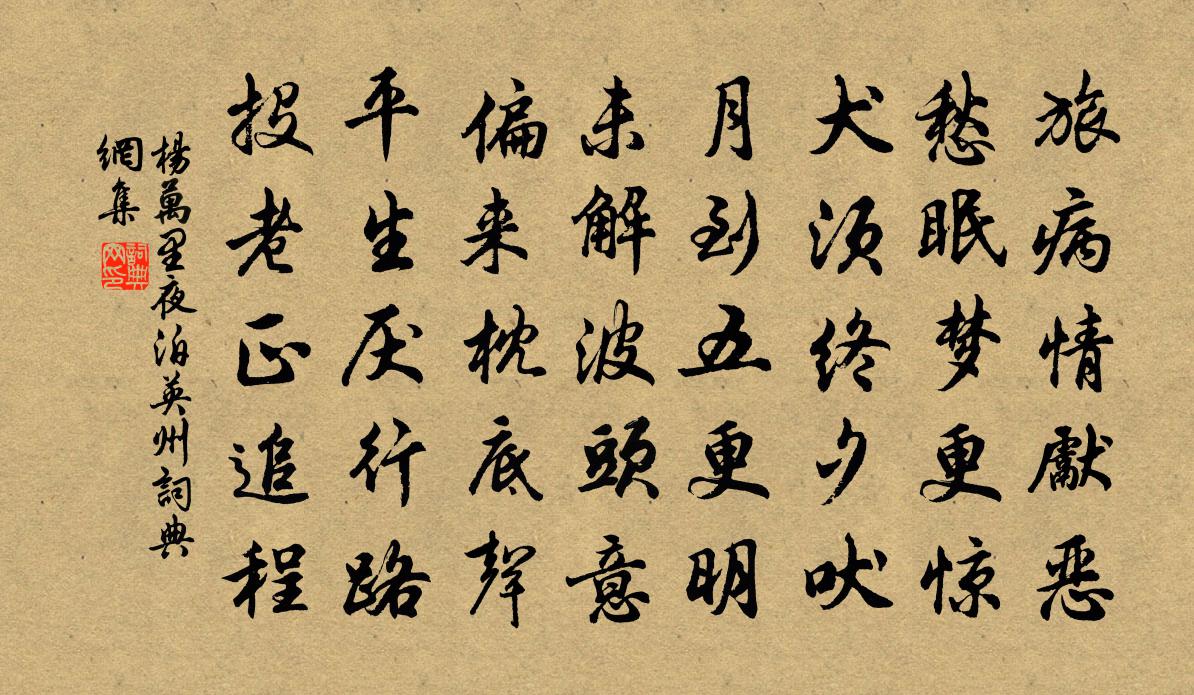 旅病情獻恶
愁眠梦更惊
犬须终夕吠
月到五更明
未解波頭意
偏来枕底聲
平生厌行路
投老正追程
楊萬里夜泊英州詞典
網集
詞典
网印